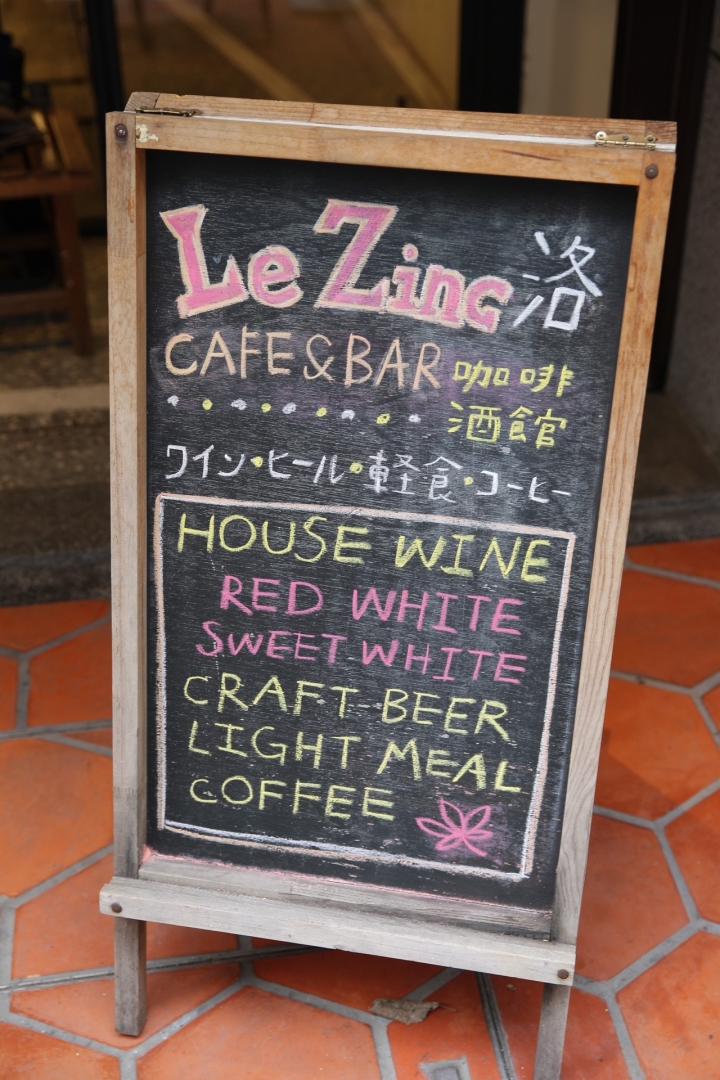 Le Zinc 洛
CAFE & BAR 咖啡
酒館
ワイン・ビール・軽食・コーヒー
HOUSE WINE
RED WHITE
SWEET WHITE
CRAFT BEER
LIGHT MEAL
COFFEE